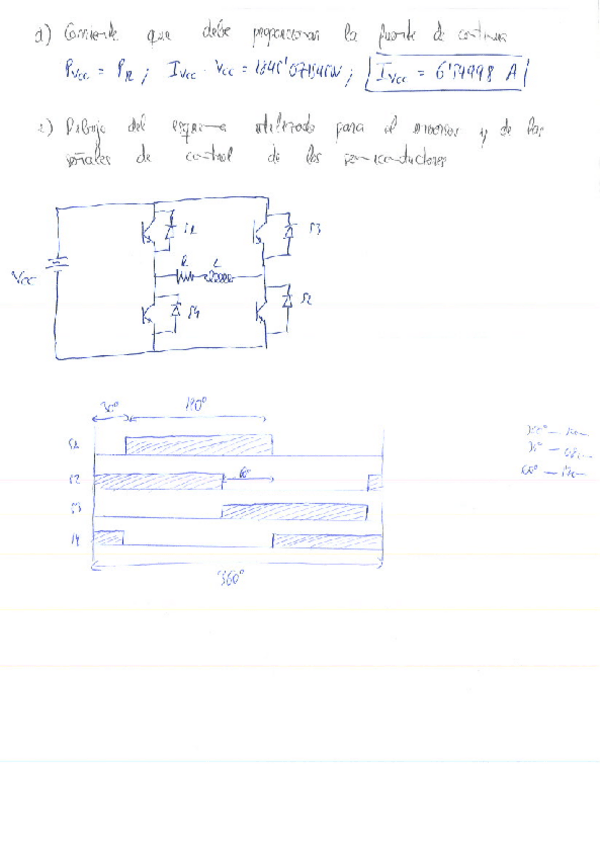 d) Corriente que debe proporcionar la fuente de continua
Pvcc = PR ; Ivcc · Vcc = 1845'071545W ; Ivcc = 6'54998 A
e) Dibuje del esquema utilizado para el inversor y de las
señales de control de los semiconductores
S1
S3
R L
Vcc
S4
S2
30° 180°
S1
S2 60°
S3
S4
360°